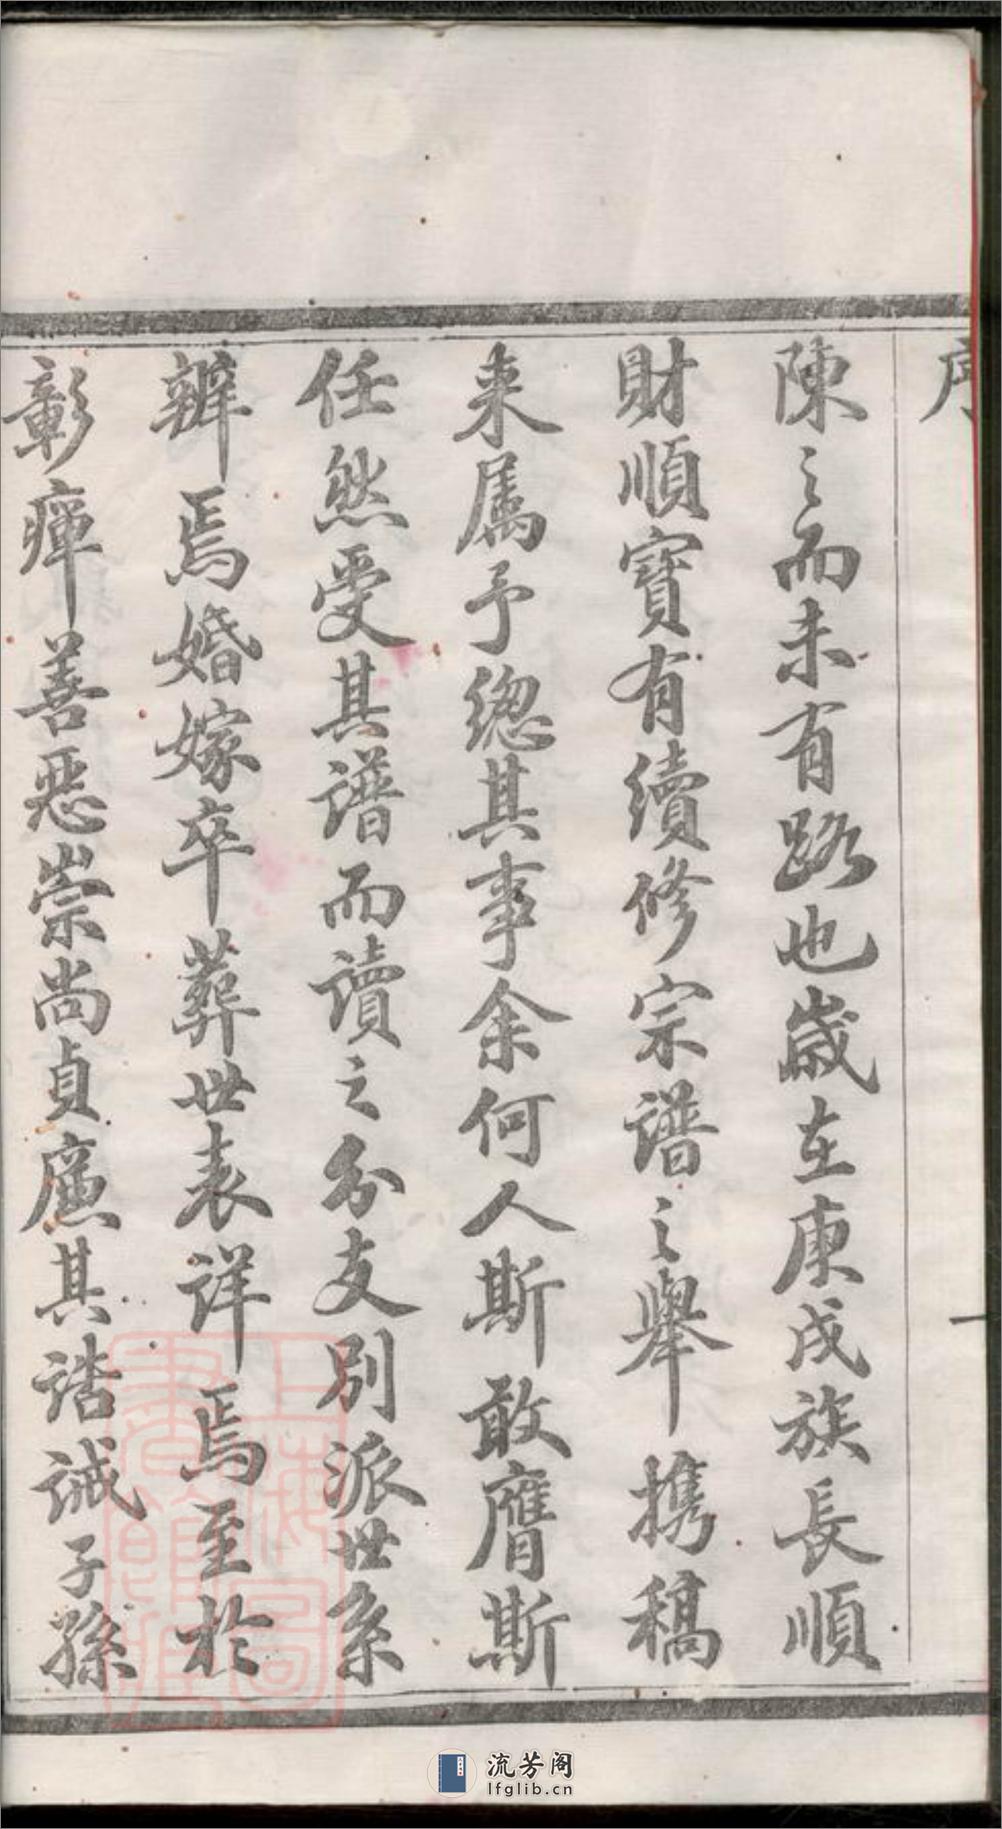 序
一
陳之而未有路也歲在庚戌族長順
財順寶有續修宗譜之舉携稿
来属予總其事余何人斯敢膺斯
任然受其譜而讀之分支別派世系
辨焉婚嫁卒葬世表詳焉至於
彰癉善惡崇尚貞廉其誥誡子孫
上海圖書館藏
流芳阁
lfglib.cn